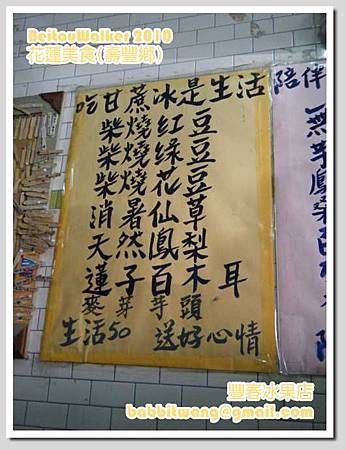 NeitouWalker 2010
花蓮美食(壽豐鄉)
吃甘蔗冰是生活
柴燒紅豆
柴燒綠豆
柴燒花豆
消暑仙草
天然鳳梨
蓮子百木耳
麥芽芋頭
生活50 送好心情
陪伴
無
芋
鳳
桑
百
豐春冰果店
babbitwang@gmail.com